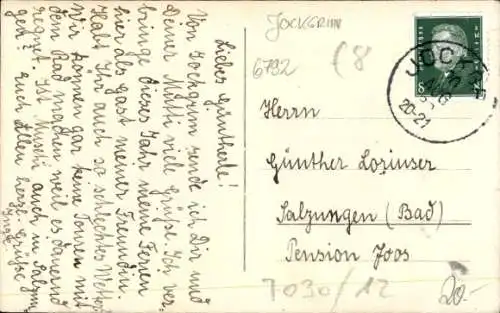 Liebes Güntherle!
Von Jockgrim sende ich Dir und
Deiner Mutti viele Grüße. Ich ver-
bringe dieses Jahr meine Ferien
hier als Gast meiner Freundin.
Habt Ihr auch so schlechtes Wetter.
Wir können gar keine Touren mit
dem Rad machen weil es dauernd
regnet. Ist Mutti auch in Salzun-
gen? Euch Allen herzl. Grüße
JOCKGRIM
6792
(8
8
JOCKGRIM
20-21
Herrn
Günther Lorinser
Salzungen (Bad)
Pension Joos
7030/12
20.-